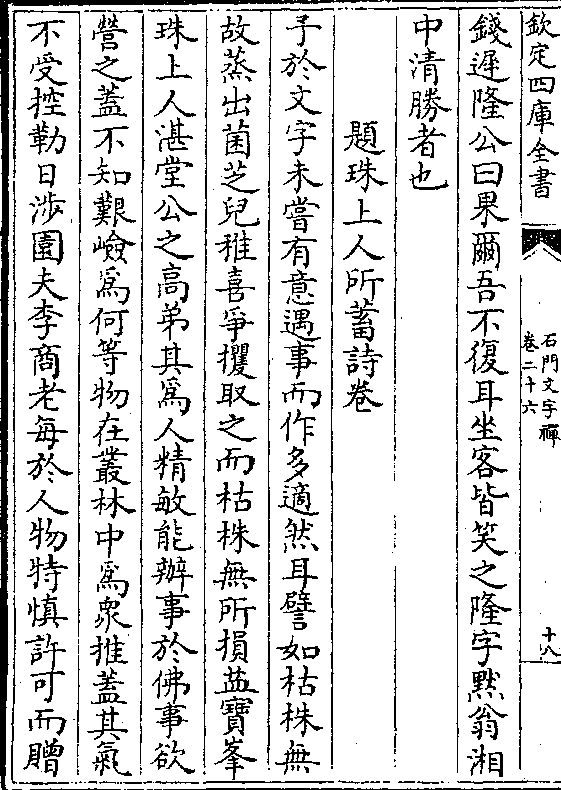 欽定四庫全書
石門文字禪
卷二十六
十八
錢遲隆公曰果爾吾不復耳坐客皆笑之隆字黙翁湘
中清勝者也
題珠上人所蓄詩卷
予於文字未嘗有意遇事而作多適然耳譬如枯株無
故蒸出菌芝兒稚喜爭攫取之而枯株無所損益寶峯
珠上人湛堂公之高弟其爲人精敏能辦事於佛事欲
營之蓋不知艱嶮爲何等物在叢林中爲衆推蓋其氣
不受控勒日涉園夫李商老每於人物特慎許可而贈